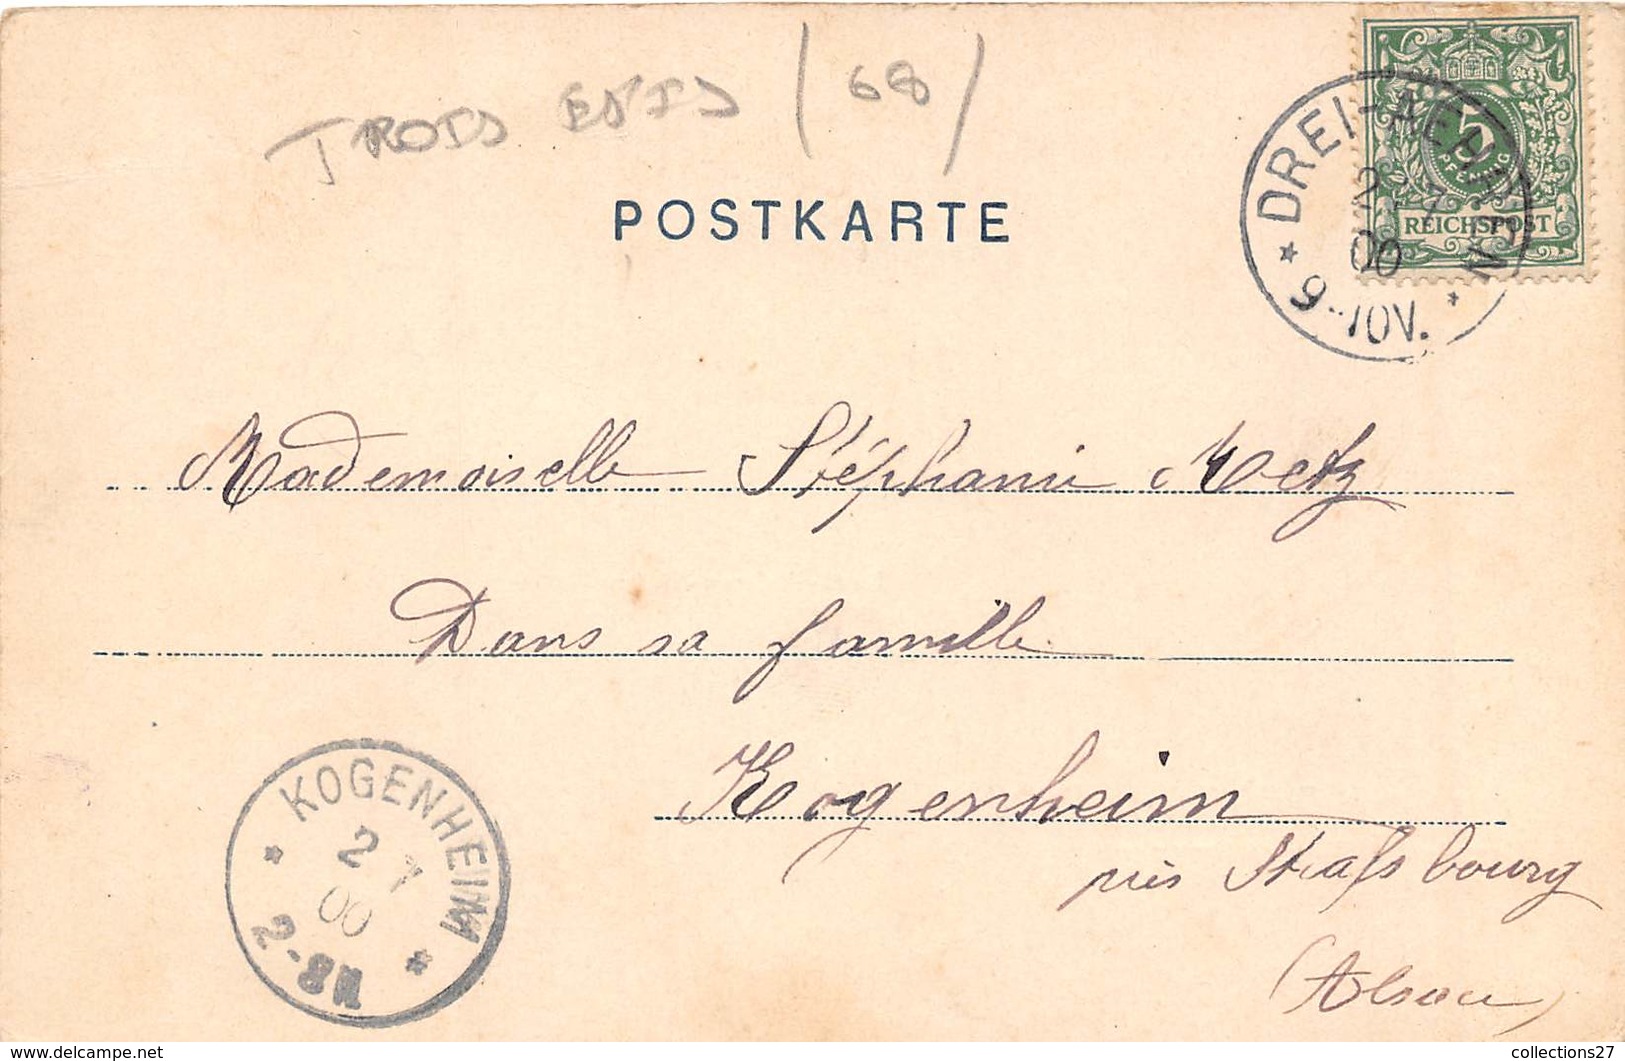 TROIS EPIS (68)
POSTKARTE
5
PFENNIG
REICHSPOST
DREI-AEHREN
2 7
00
9-10V.
Mademoiselle Stéphanie Metz
Dans sa famille
Kogenheim
près Straßbourg
(Alsace)
KOGENHEIM
2 7
00
2-3N
collections27